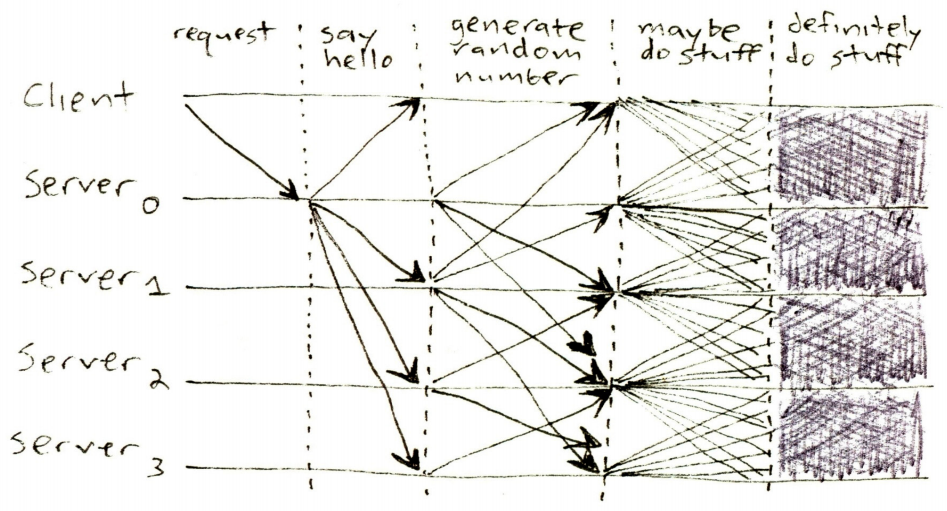 request
say
hello
generate
random
number
maybe
do stuff
definitely
do stuff
Client
Server 0
Server 1
Server 2
Server 3